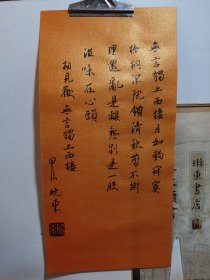 無言獨上西樓月如鈎寂寞
梧桐深院鎖清秋剪不斷
理還亂是離愁別是一般
滋味在心頭
相見歡 無言獨上西樓
甲辰 曉東
東書店